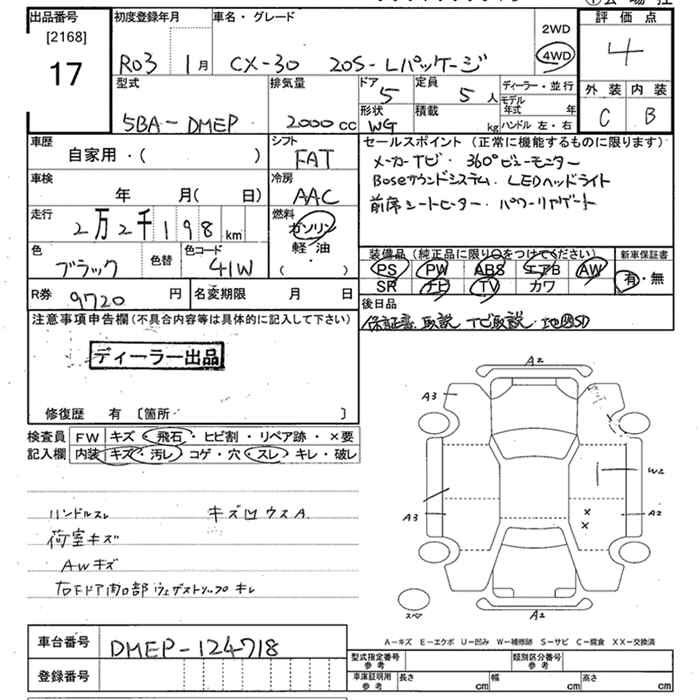 出品番号 初度登録年月 車名・グレード 評価点
[2168] 17 R03 1月 CX-30 20S-Lパッケージ 2WD 4WD 4
型式 排気量 ドア 定員 ディーラー・並行 外装 内装
5BA-DMEP 2000cc 5 5人 モデル年式 年 C B
形状 積載 ハンドル 左・右
WG kg
車歴 シフト セールスポイント(正常に機能するものに限ります)
自家用・( ) FAT メーカーナビ・360°ビューモニター
車検 冷房 Boseサウンドシステム・LEDヘッドライト
年 月(日) AAC 前席シートヒーター・パワーリヤゲート
走行 燃料
2万2千198km ガソリン
色 色替 色コード 軽・油 装備品(純正品に限り○をつけてください) 新車保証書
ブラック 41W ( ) PS PW ABS エアB AW 有・無
SR ナビ TV カワ
R券 9720円 名変期限 月 日 後日品
保証書 取説 ナビ取説 地図SD
注意事項申告欄(不具合内容等は具体的に記入して下さい)
ディーラー出品
修復歴 有 [箇所 ]
検査員 FW キズ・飛石・ヒビ割・リペア跡・×要
記入欄 内装 キズ・汚レ コゲ・穴・スレ・キレ・破レ
ハンドルスレ キズ凹ウスA
荷室キズ
AWキズ
右Fドア開口部ウェザストリップキレ
A2
A3
W2
A3 A2
×
×
スペア A2
A-キズ E-エクボ U-凹み W-補修跡 S-サビ C-腐食 XX-交換済
車台番号 DMEP-124718
型式指定番号 参考 類別区分番号 参考
登録番号 車庫証明用 参考 長さ cm 幅 cm 高さ cm